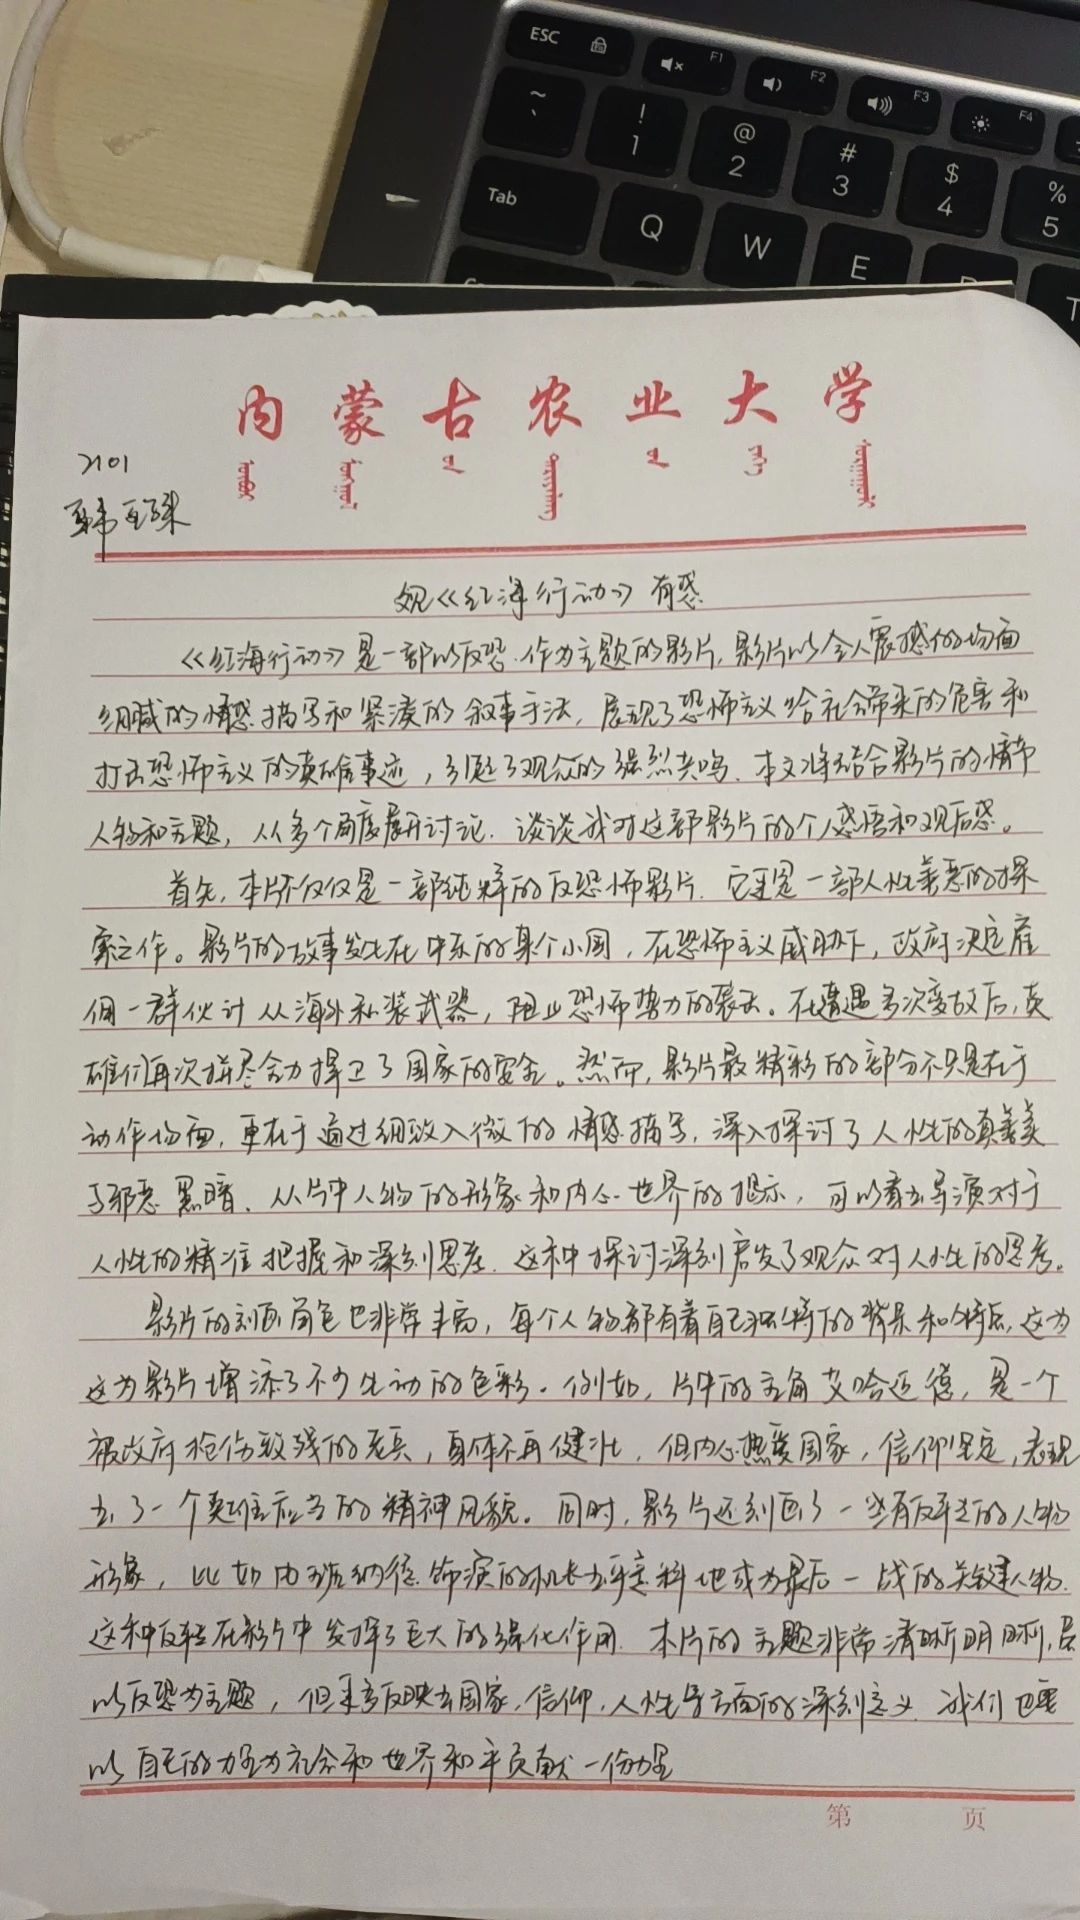 ESC
F1
F2
F3
F4
~
`
!
1
@
2
#
3
$
4
%
5
Tab
Q
W
E
内蒙古农业大学
2101
韩
观《红海行动》有感
《红海行动》是一部以反恐作为主题的影片,影片以令人震撼的场面
细腻的情感描写和紧凑的叙事手法,展现了恐怖主义给社会带来的危害和
打击恐怖主义的真实事迹,引起了观众的强烈共鸣.本文将结合影片的情节
人物和主题,从多个角度展开讨论.谈谈我对这部影片的个人感悟和观后感。
首先,本片不仅仅是一部纯粹的反恐怖影片.它更是一部人性善恶的探
索之作。影片的故事发生在中东的某个小国,在恐怖主义威胁下,政府决定雇
佣一群伙计从海外私装武器,阻止恐怖势力的袭击。在遭遇多次变故后,英
雄们再次拼尽全力捍卫了国家的安全。然而,影片最精彩的部分不只是在于
动作场面,更在于通过细致入微的情感描写,深入探讨了人性的真善美
与邪恶黑暗.从片中人物的形象和内心世界的揭示,可以看出导演对于
人性的精准把握和深刻思考.这种探讨深刻启发了观众对人性的思考。
影片的刻画角色也非常丰富,每个人物都有着自己独特的背景和特点,这为
这为影片增添了不少生动的色彩。例如,片中的主角艾哈迈德,是一个
被政府抢伤致残的老兵,身体不再健壮,但内心热爱国家,信仰坚定,表现
出了一个英雄应当的精神风貌。同时,影片还刻画了一些有反转的人物
形象,比如由班纳德饰演的机长出乎意料地成为最后一战的关键人物.
这种反转在影片中发挥了巨大的强化作用.本片的主题非常清晰明晰,虽
以反恐为主题,但更多反映出国家,信仰,人性等方面的深刻意义.我们也要
以自己的力量为社会和世界和平贡献一份力量
第 页